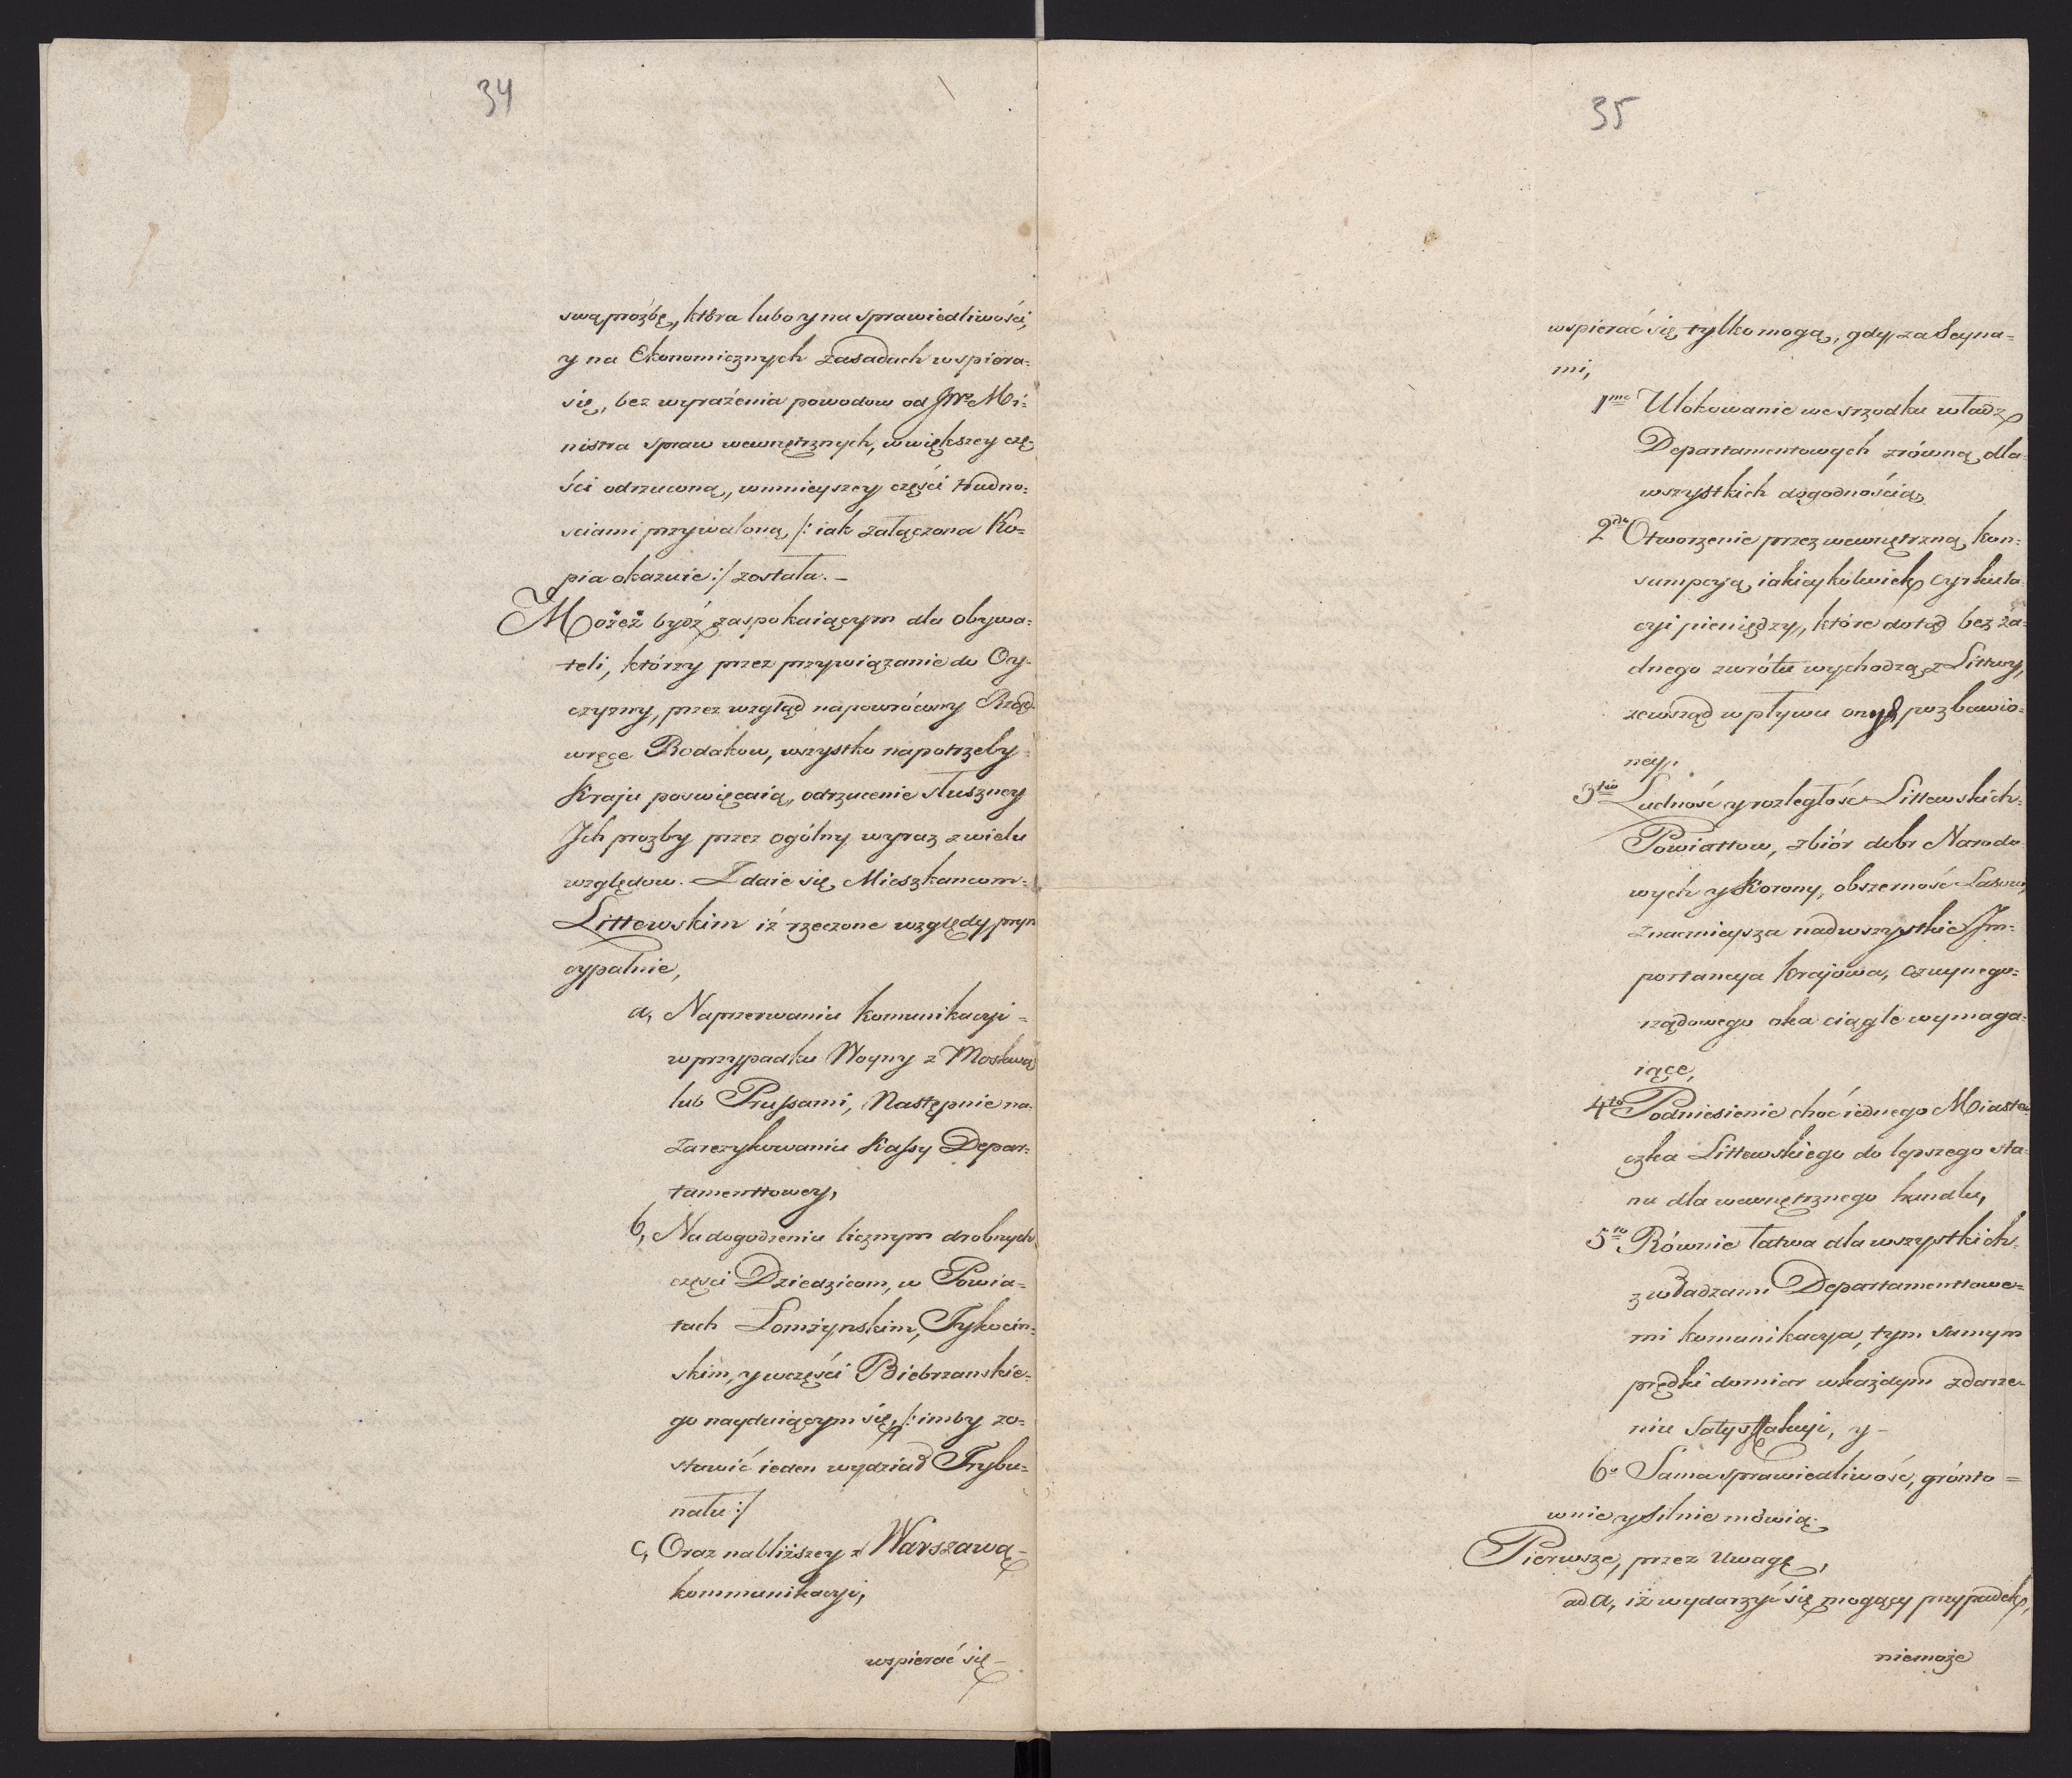 34
swą prożbę, ktŏra lubo y na sprawiedliwości,
y na Ekonomicznych zasadach wspiera=
się, bez wyrażenia powodow od JWo Mi:
nistra spraw wewnętrznych, wwiększey czę-
ści odrzuconą, wmnieyszey części trudno:
sciami przywaloną /: iak załączona Ko=
pia okazuie :/ została. –
Możeż bydź zaspokaiącym dla obywa:
teli, którzy przez przywiązanie do Oy-
czyzny, przez wzgląd napowrócony Rząd
wręce Rodakow, wszystko napotrzeby
Kraju poswięcaią, odrzucenie słuszney
Jch prozby przez ogólny wyraz zwielu
względow. Zdaie się Mieszkancom=
Littewskim iż rzeczone względy pryn
cypalnie,
a, Naprzerwaniu komunikacyi =
wprzypadku Woyny z Moskwą
lub Prussami, Następnie na
zarezykowaniu Kassy Depar:
tamenttowey,
b, Nadogodzeniu licznym drobnych
części Dziedzicom, w Powia=
tach Lomżynskim, Tykocin:
skim, y wczęści Biebrzanskie-
go nayduiącym się, /: imby zo:
stawić ieden wydział Trybu=
nału :/
c, Oraz nabliższey z Warszawą –
kommunikacyi,
wspierać się –
35
wspierać się tylko mogą, gdy za Seyna=
mi,
1mo Ulokowanie we srzodku władz
Departamentowych zrówną dla
wszystkich dogodnością
2do Otworzenie przez wewnętrzną kon:
sumpcyą iakieykolwiek cyrkula
cyi pieniędzy, które dotąd bez ża=
dnego zwrótu wychodzą z Littwy,
zewsząd wpływu onych pozbawio:
ney,
3tio Ludność y rozległość Littewskich=
Powiattow, zbiór dobr Narodo
wych y Korony, obszerność Lasow,
znacznieysza nadwszystkie Jm=
portancya krajowa, czuynego=
rządowego oka ciągle wymaga=
iące,
4to Podniesienie choć iednego Miaste
czka Littewskiego do lepszego sta
nu dla wewnętrznego handlu,
5to Równie łatwa dla wszystkich=
zwładzami Departamenttowe=
mi komunikacya, tym samym
prędki domiar wkażdym zdarze-
niu Satysfakcyi, y –
6o Sama sprawiedliwośc, grónto =
wnie y silnie mówią.
Pierwsze, przez Uwagę,
ad a, iż wydarzyć się mogący przypadek,
niemoże